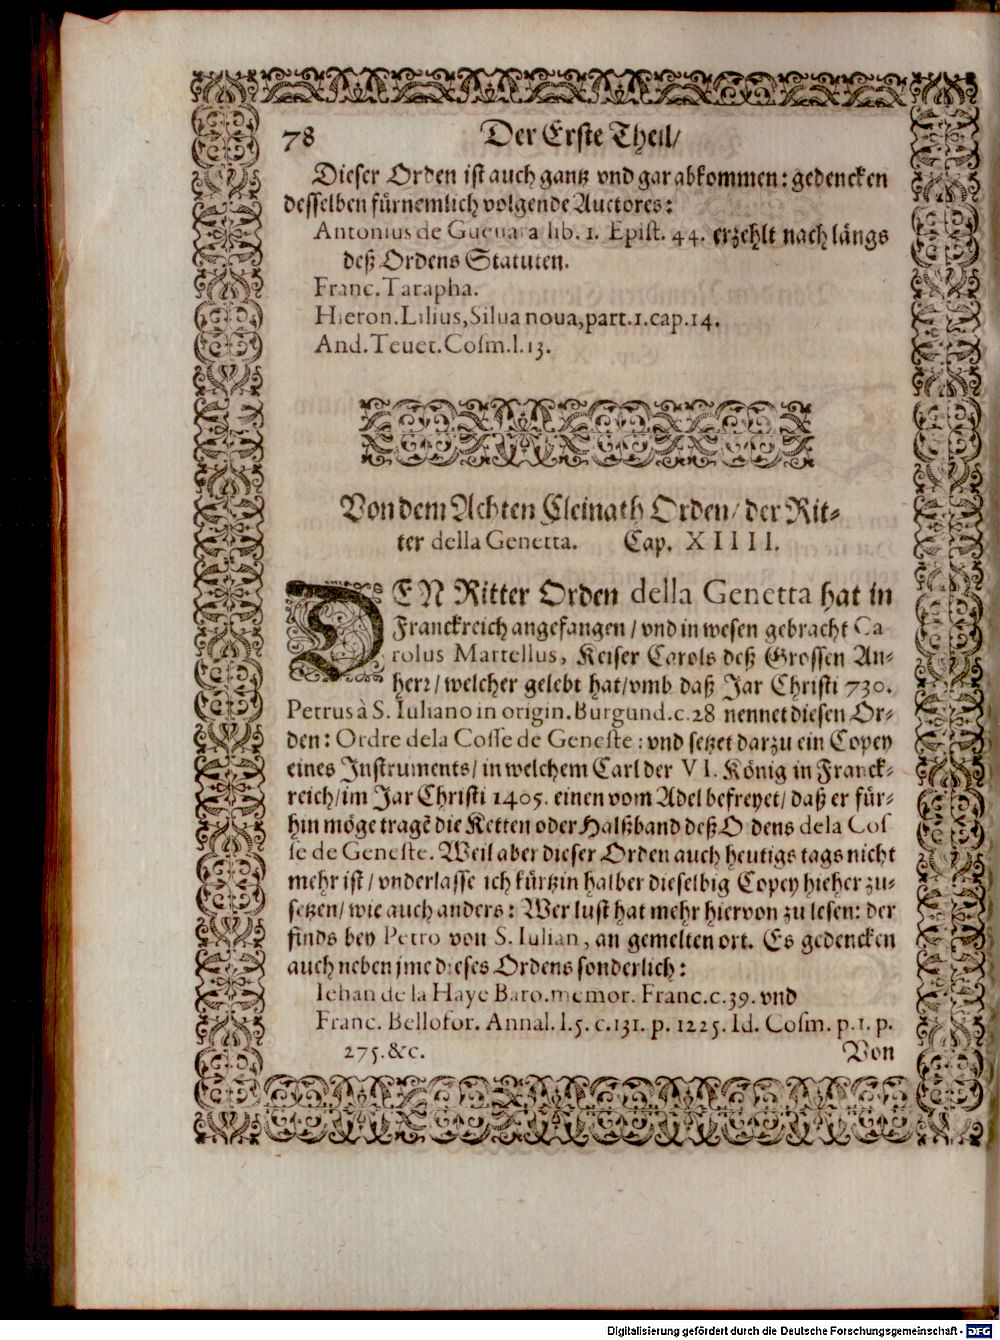 78 Der Erste Theil/
Dieser Orden ist auch gantz vnd gar abkommen: gedencken
desselben fürnemlich volgende Auctores:
Antonius de Gueuara lib. 1. Epist. 44. erzehlt nach längs
deß Ordens Statuten.
Franc. Tarapha.
Hieron. Lilius, Silua noua, part. 1. cap. 14.
And. Teuet. Cosm. l. 13.
Von dem Achten Cleinath Orden/ der Rit-
ter della Genetta. Cap. XIIII.
DEN Ritter Orden della Genetta hat in
Franckreich angefangen/ vnd in wesen gebracht Ca
rolus Martellus, Keiser Carols deß Grossen An-
herr/ welcher gelebt hat/ vmb daß Jar Christi 730.
Petrus à S. Iuliano in origin. Burgund. c. 28 nennet diesen Or-
den: Ordre dela Cosse de Geneste: vnd setzet darzu ein Copey
eines Instruments/ in welchem Carl der VI. König in Franck-
reich/ im Jar Christi 1405. einen vom Adel befreyet/ daß er für-
hin möge tragẽ die Ketten oder Halßband deß O dens dela Cos
se de Geneste. Weil aber dieser Orden auch heutigs tags nicht
mehr ist/ vnderlasse ich kürtzin halber dieselbig Copey hieher zu-
setzen/ wie auch anders: Wer lust hat mehr hiervon zu lesen: der
finds bey Petro von S. Iulian, an gemelten ort. Es gedencken
auch neben jme dieses Ordens sonderlich:
Iehan de la Haye Baro. memor. Franc. c. 39. vnd
Franc. Bellofor. Annal. l. 5. c. 131. p. 1225. Id. Cosm. p. 1. p.
275. &c. Von
Digitalisierung gefördert durch die Deutsche Forschungsgemeinschaft - DFG